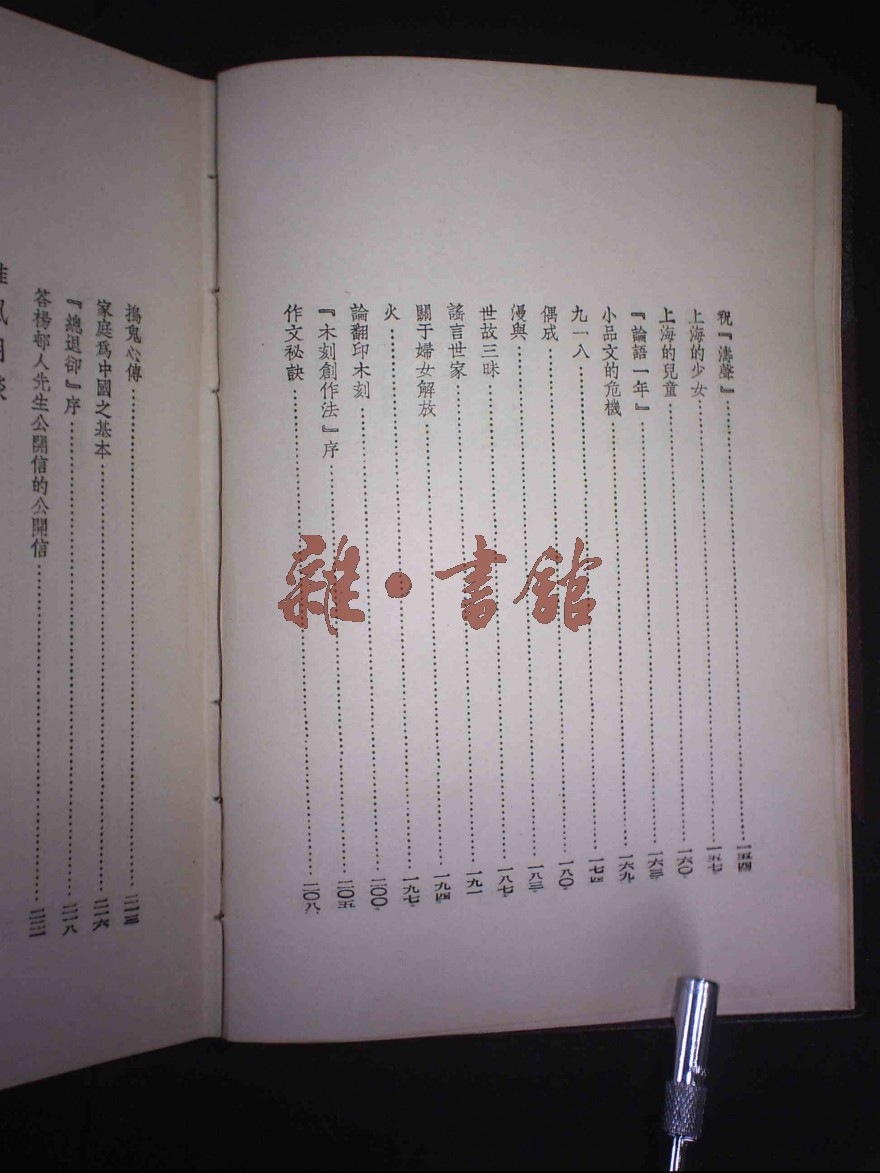 祝『濤聲』……一五四
上海的少女……一五七
上海的兒童……一六〇
『論語一年』……一六三
小品文的危機……一六九
九一八……一七四
偶成……一八〇
漫與……一八三
世故三昧……一八七
謠言世家……一九一
關于婦女解放……一九四
火……一九七
論翻印木刻……二〇〇
『木刻創作法』序……二〇五
作文祕訣……二〇八
搗鬼心傳……二一三
家庭爲中國之基本……二一六
『總退却』序……二一八
答楊邨人先生公開信的公開信……二二一
雜·書館